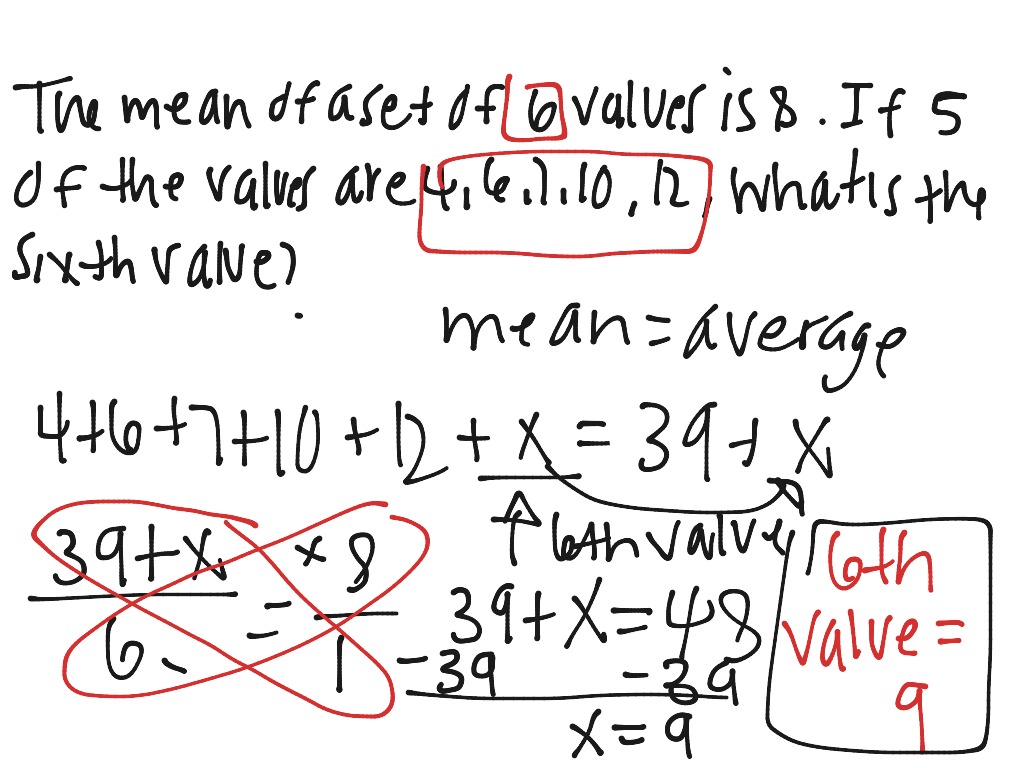 The mean of a set of 6 values is 8. If 5
of the values are 4, 6, 7, 10, 12, what is the
sixth value?
mean = average
4+6+7+10+12+x = 39+x
↑ 6th value
39+x = 8
6 1
39+x=48
-39 -39
x=9
6th
value=
9